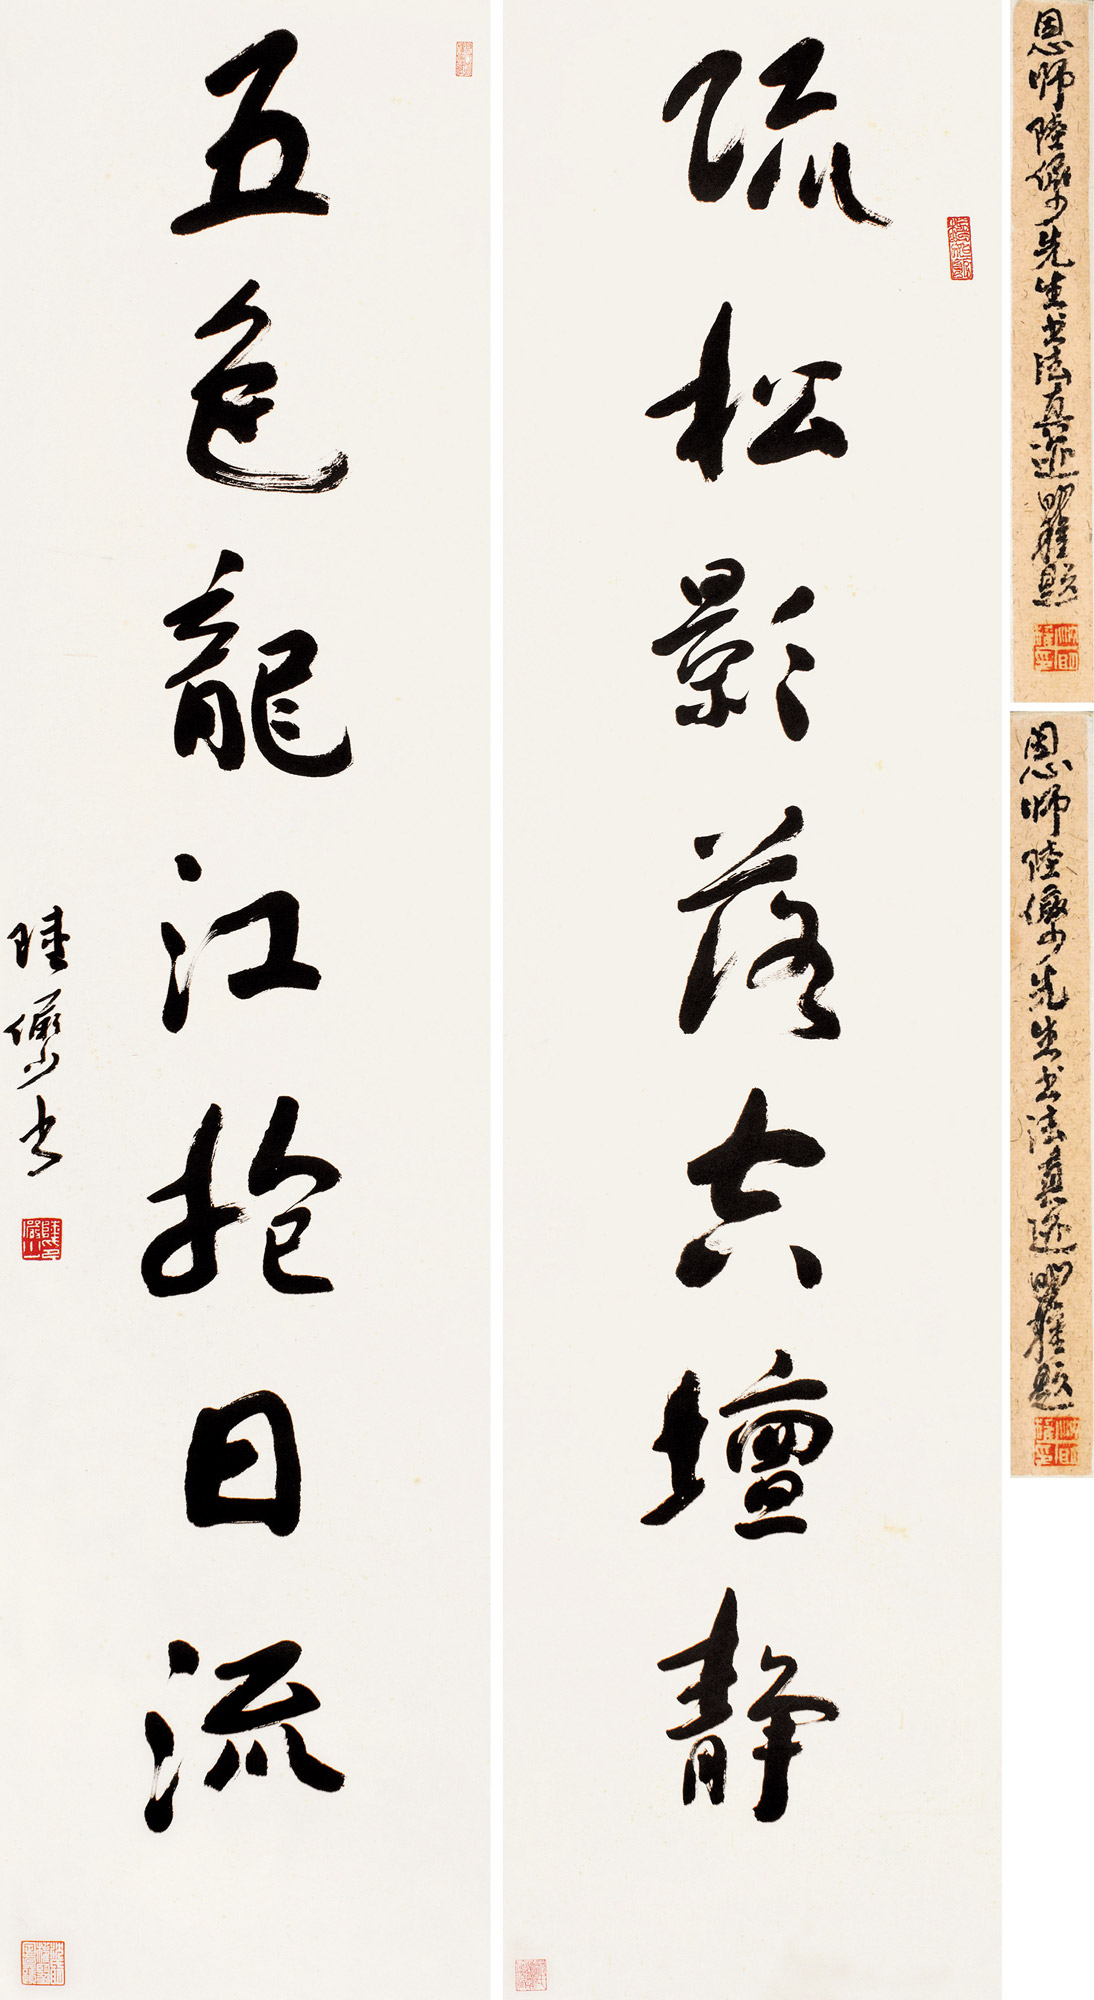 疏松影落空壇静
五色龍江抱日流
陸儼少书
恩师陸儼少先生书法真迹 明權題
恩师陸儼少先生书法真迹 明權題